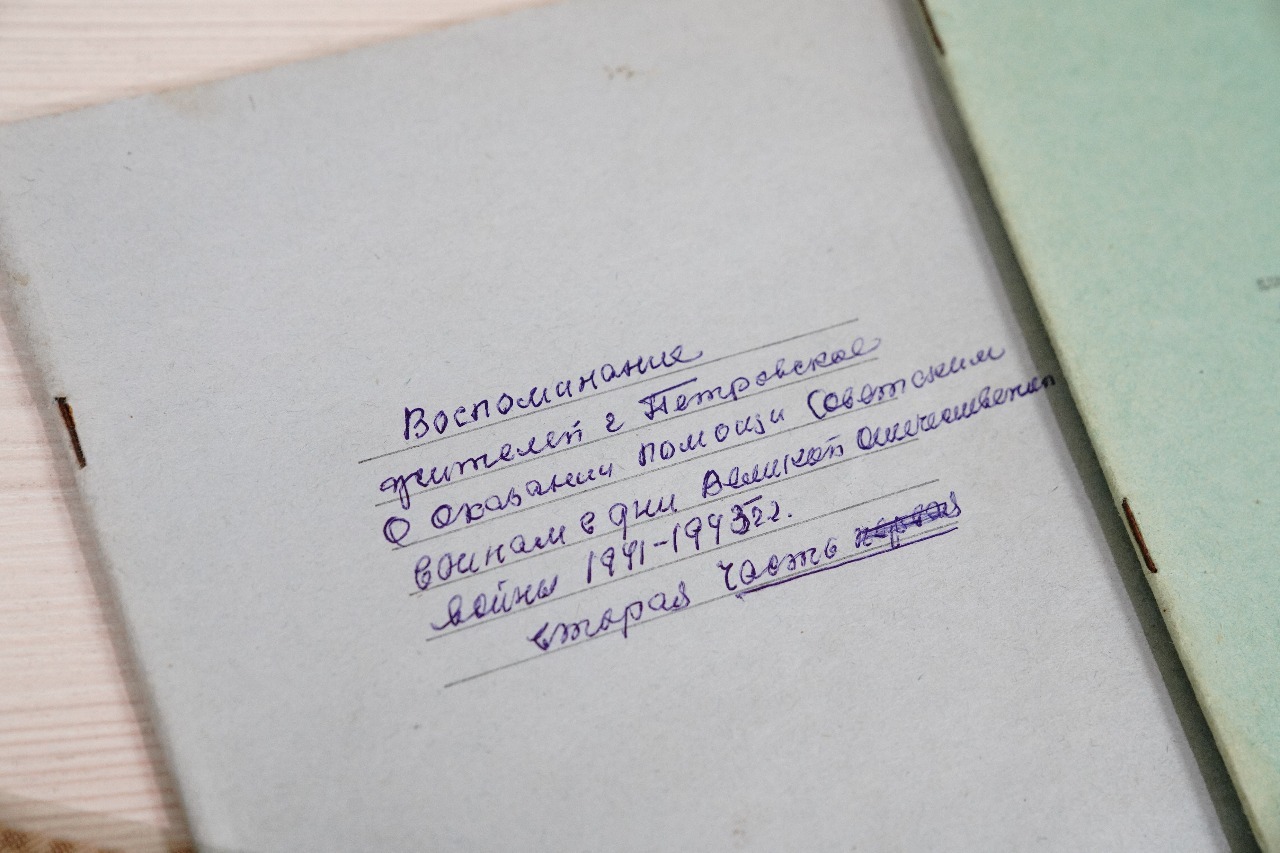 Воспоминание
жителей г Петровское
О оказании помощи Советским
воинам в дни Великой отечественной
войны 1941-1945гг.
вторая часть первая